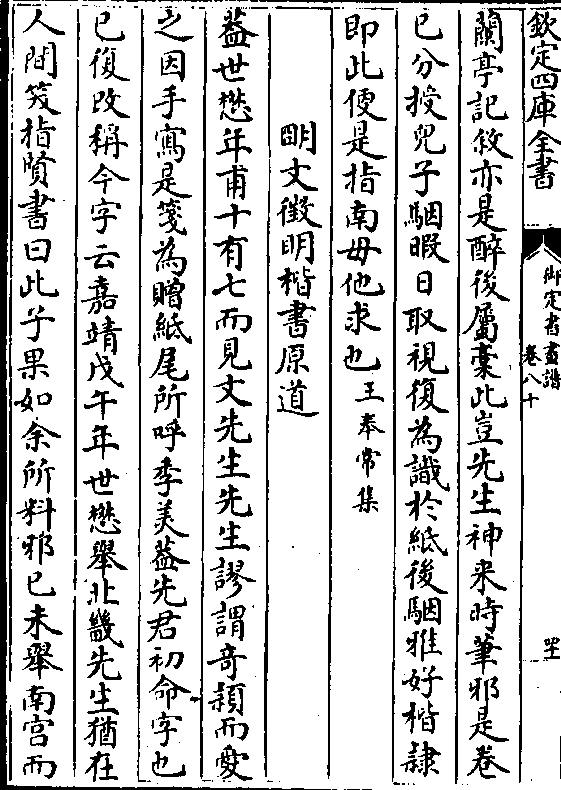 欽定四庫全書
御定書畫譜
卷八十
蘭亭記攸亦是醉後屬稾此豈先生神来時筆邪是卷
已分授兒子駰暇日取視復為識於紙後駰雅好楷隷
即此便是指南毋他求也王奉常集
明文徴明楷書原道
葢世懋年甫十有七而見文先生先生謬謂竒穎而愛
之因手寫是箋為贈紙尾所呼季美葢先君初命字也
已復改稱今字云嘉靖戊午年世懋舉北畿先生猶在
人間笈指賢書曰此子果如余所料邪已未舉南宫而